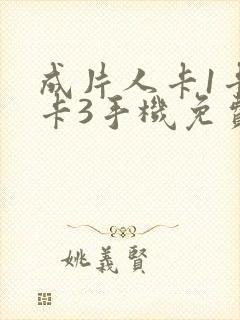 成片人卡1卡
卡3手機免費
姚義賢